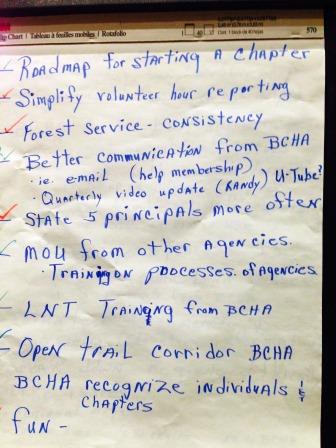 Flip Chart | Tableau à feuilles mobiles | Rotafolio
570
Roadmap for starting a chapter
Simplify volunteer hour reporting
Forest Service - consistency
Better communication from BCHA
· ie. e-mail (help membership)
· Quarterly video update (Randy) U-Tube?
State 5 principals more often
MOU from other agencies.
· Training on pocesses. of agencies
LNT Training from BCHA
Open trail corridor BCHA
BCHA recognize individuals &
chapters
fun -